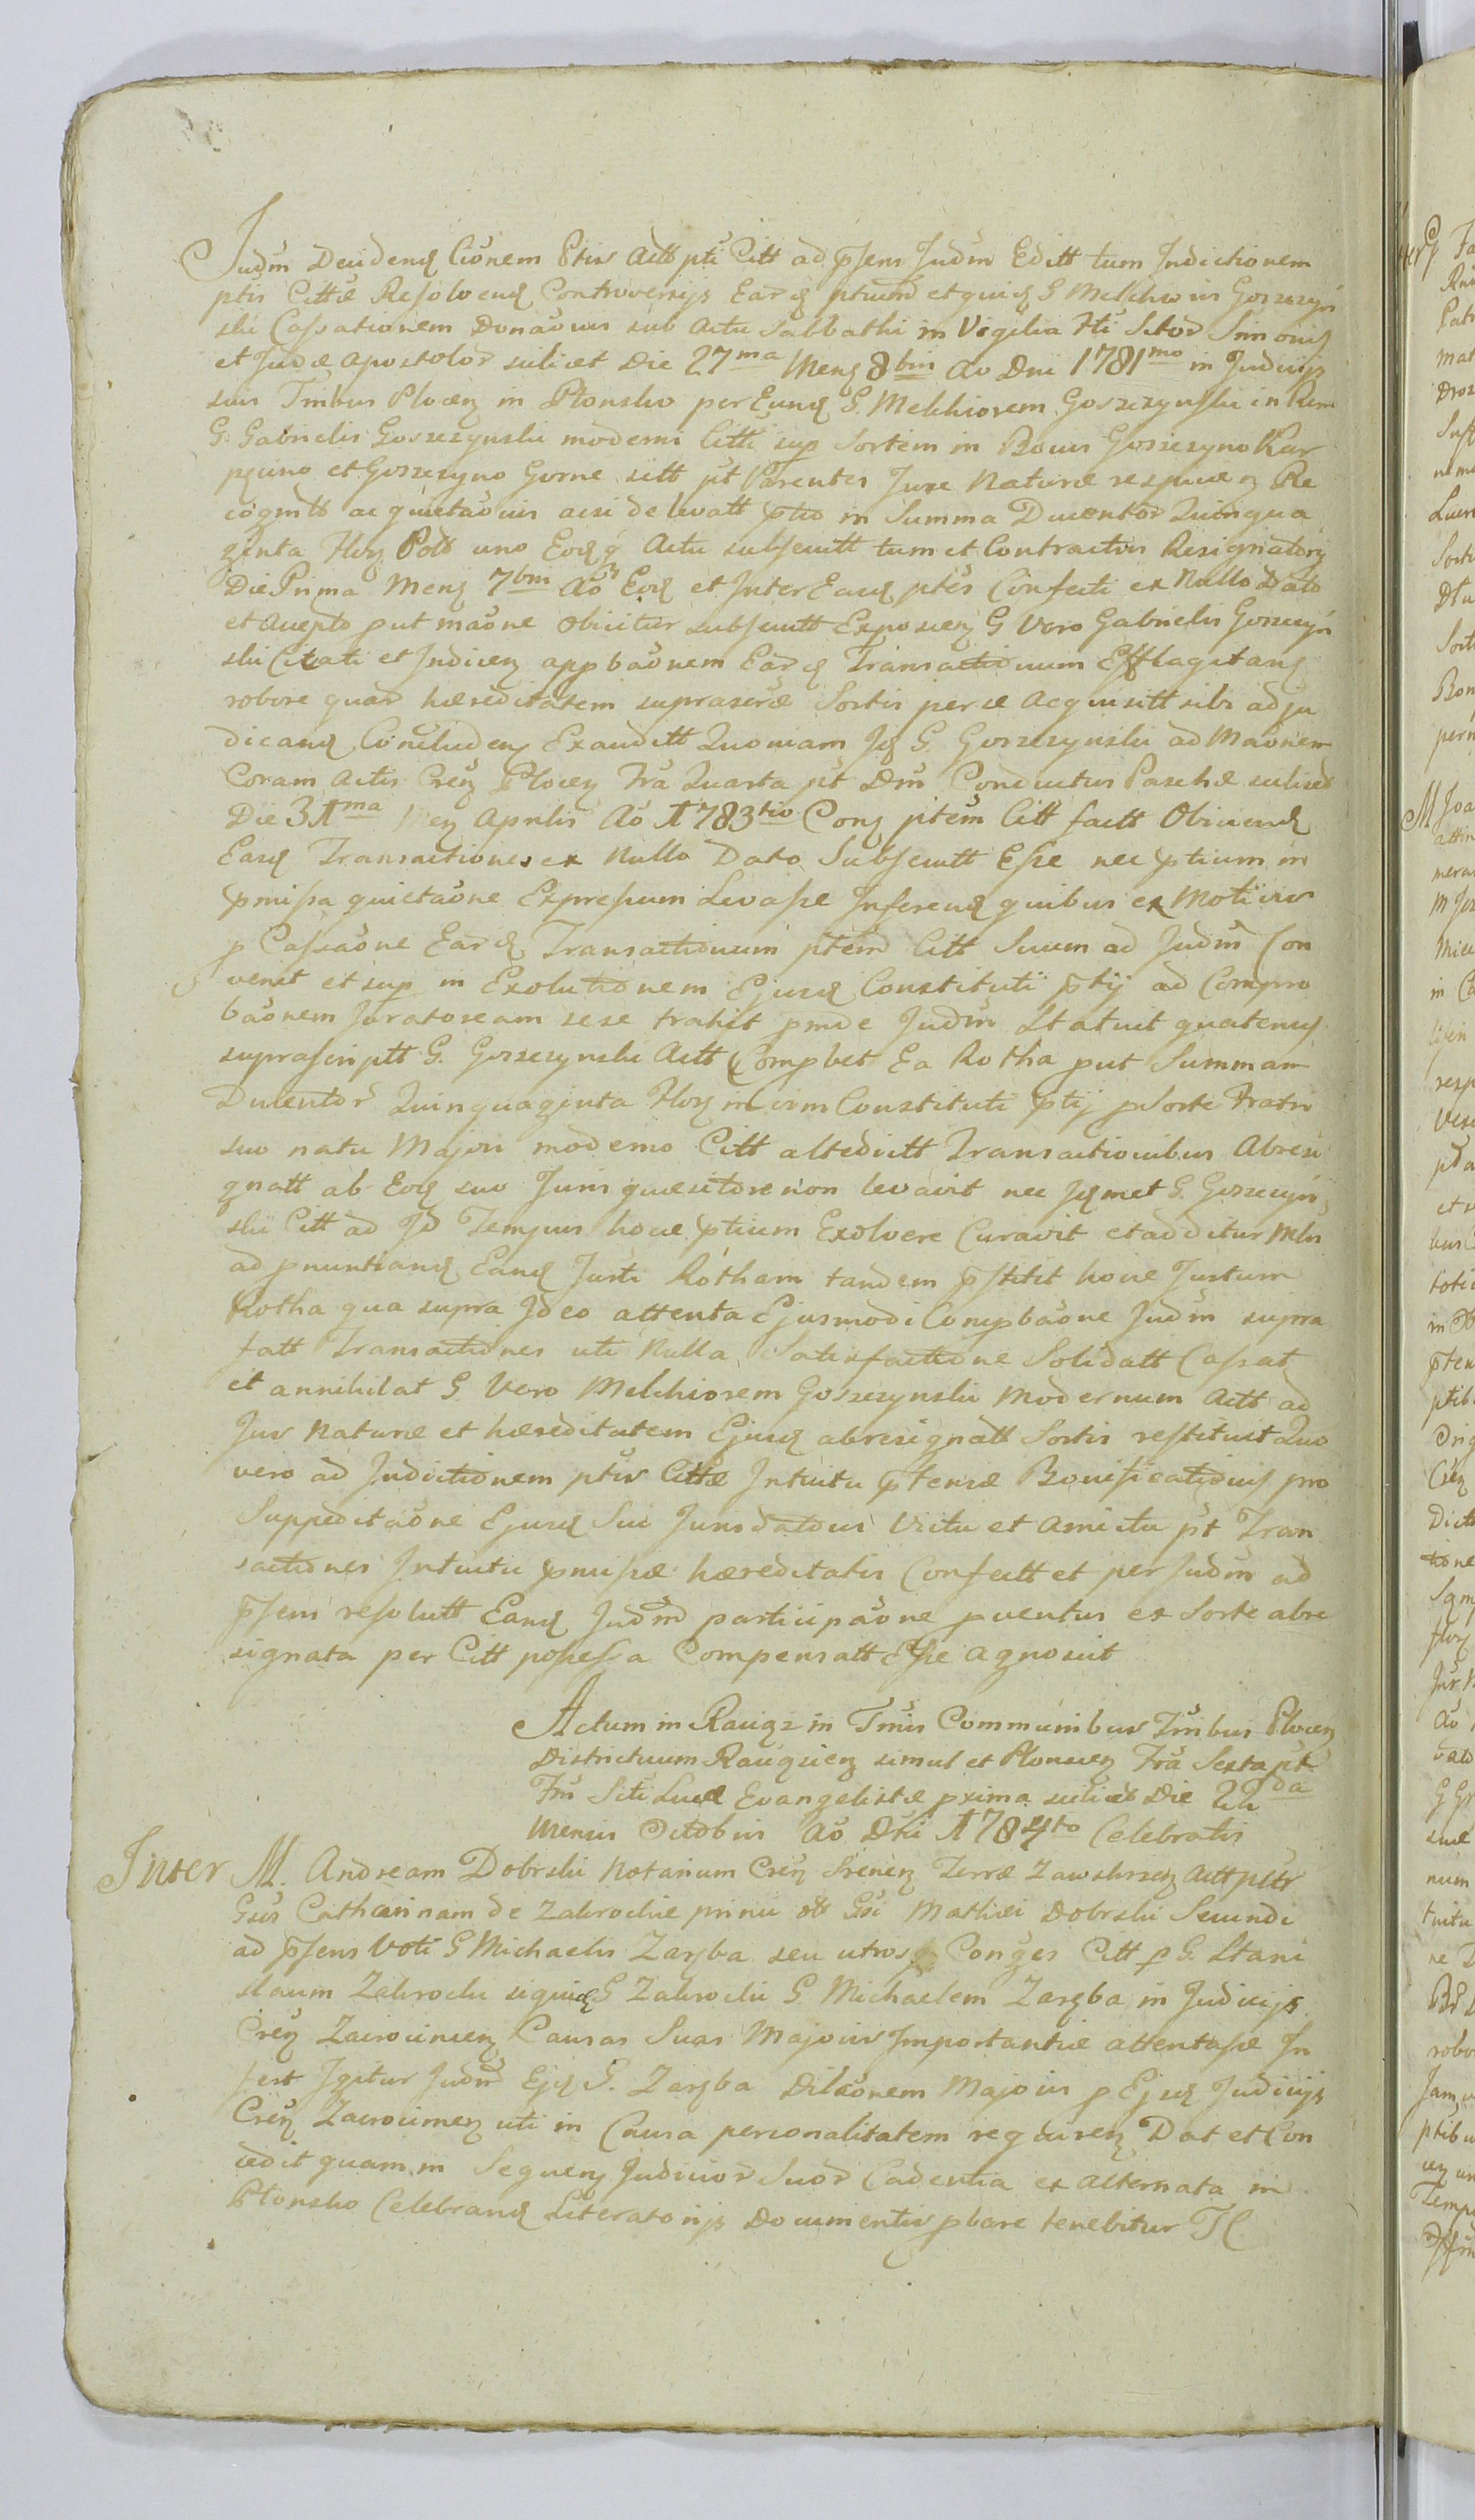 Judm Decidend Cionem Ptis Actt pti Citt ad pssens Judm Editt tum Indictionem
ptis Cittæ Resolvend Controversijs Eard ptium et quid G Melchioris Goszczyń
ski Cassationem Donaonis sub Actu Sabbathi in Vigilia Fti Sctor Simonis
et Judæ Apostolor scilicet Die 27ma Mens 8bris Ao Dni 1781mo in Judicijs
suis Trribus Plocen in Płonsko per Eund G. Melchiorem Goszczynski in Rem
G. Gabrielis Goszczynski moderni Citti sup Sortem in Bonis Goszczyno Kar
 et Goszczyno Gorne sitt pt Parentes Jure Naturæ respicien Re
cognitt ac quietaonis acsi de levatt ptio in Summa Ducentor Quinqua
ginta Flor Pol uno Eodq Actu subsecutt tum et Contractus Resignatory
Die Prima Mens 7bris Ao Eod et Inter Easd ptes Confecti ex Nullo Dato
et Accepto put maone Obiicitur subsecutt Exposcen G Vero Gabrielis Goszczyń
ski Citati et Indicen appbaonem Eard Transactionum Efflagitans
robore quar hæreditatem suprascræ Sortis per se Acquisitt sibi adju
dicand Concluden Exauditt Quoniam Jd G. Goszczynski ad Maonem
Coram Actis Cren Plocen Fra Quarta pt Dm Conductus Paschæ scilicet
Die 31ma Men Aprilis Ao 1783tio Cong ptem Citt factt Obiiciend
Easd Transactiones ex Nullo Dato Subsecutt Esse nec ptium in
pmissa quietaone Expressum Levasse Inferend quibus ex Motivis
p Cassaone Eard Transactionum ptem Citt Suum ad Judm Con
venit et sup in Exolutionem Ejusd Constituti ptij ad Compro
baonem Juratoream sese trahit pinde Judm Statuit quatenus
suprascriptt G. Goszczynski Actt Compbet Ea Rotha put Summam
Ducentor Quinquaginta Flor in vim Constituti ptij p Sorte Fratri
suo natu Majori moderno Citt altedictt Transactionibus Abresi
gnatt ab Eod suo Juris quæsitore non levavit nec Jdmet G. Goszczyń
ski Citt ad Id Tempus hocce ptium Exolvere Curavit et additur Mlis
ad pnuntiand Eand Justi Rotham tandem pstitit hocce Justum
Rotha qua supra Ideo attenta Ejusmodi Compbaone Judm supra
fatt Transactiones uti Nulla Satisfactione Solidatt Cassat
et annihilat G Vero Melchiorem Goszczynski Modernum Actt ad
Jus Naturæ et hæreditatem Ejusd abresignatt Sortis restituit Quo
vero ad Indictionem ptis Cittæ Intuitu ptensæ Bonificationis pro
Suppeditaone Ejusd Sui Jurisdatoris Victu et Amictu pt Tran
sactiones Intuitu pmissæ hæreditatis Confectt et per Judm ad
pssens resolutt Eand Judm participaone pventus ex Sorte abre
signata per Citt possessa Compensatt Esse Agnoscit
Actum in Raciąż in Tmis Communibus Trribus Plocen
Districtuum Raciąziens simul et Płonscen Fra Sexta pt
Fm Scti Lucæ Evangelistæ pxima scilicet Die 22da
Mensis Octobris Ao Dni 1784to Celebratis
Inter M. Andream Dobrski Notarium Cren Srenen Terræ Zawskrzen Actt
Gsis Catharinam de Zakrockie primi olt Gsi Mathei Dobrski Secundi
ad pssens Voti G Michaelis Zaręba seu utrosq Conges Citt p G. Stani
slaum Zakrocki siquid G Zakrocki G Michaelem Zaręba in Judicijs
Cren Zacrocimen Causas Suas Majoris Importantiæ attentasse In
fert Igitur Judm Ejd G. Zaręba Dilaonem Majoris p Ejusd Judicijs
Cren Zacrocimen uti in Causa personalitatem requiren Dat et Con
cedit quam in Sequen Judicior Suor Cadentia ex alternata in
Płonsko Celebrand Literatorijs Documentis pbare tenebitur